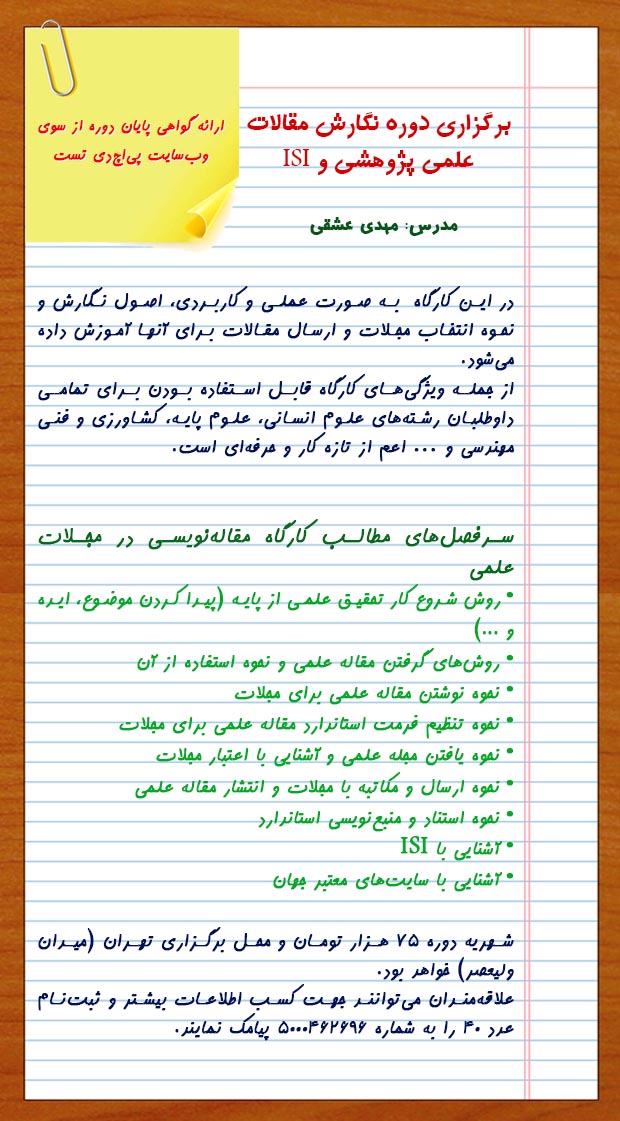 برگزاری دوره نگارش مقالات
علمی پژوهشی و ISI
ارائه گواهی پایان دوره از سوی
وب‌سایت پی‌اچ‌دی تست
مدرس: مهدی عشقی
در این کارگاه به صورت عملی و کاربردی، اصول نگارش و
نحوه انتخاب مجلات و ارسال مقالات برای آنها آموزش داده
می‌شود.
از جمله ویژگی‌های کارگاه قابل استفاده بودن برای تمامی
داوطلبان رشته‌های علوم انسانی، علوم پایه، کشاورزی و فنی
مهندسی و ... اعم از تازه کار و حرفه‌ای است.
سرفصل‌های مطالب کارگاه مقاله‌نویسی در مجلات
علمی
• روش شروع کار تحقیق علمی از پایه (پیدا کردن موضوع، ایده
و ...)
• روش‌های گرفتن مقاله علمی و نحوه استفاده از آن
• نحوه نوشتن مقاله علمی برای مجلات
• نحوه تنظیم فرمت استاندارد مقاله علمی برای مجلات
• نحوه یافتن مجله علمی و آشنایی با اعتبار مجلات
• نحوه ارسال و مکاتبه با مجلات و انتشار مقاله علمی
• نحوه استناد و منبع‌نویسی استاندارد
• آشنایی با ISI
• آشنایی با سایت‌های معتبر جهان
شهریه دوره ۷۵ هزار تومان و محل برگزاری تهران (میدان
ولیعصر) خواهد بود.
علاقه‌مندان می‌توانند جهت کسب اطلاعات بیشتر و ثبت‌نام
عدد ۴۰ را به شماره ۵۰۰۰۴۶۲۶۹۶ پیامک نمایند.